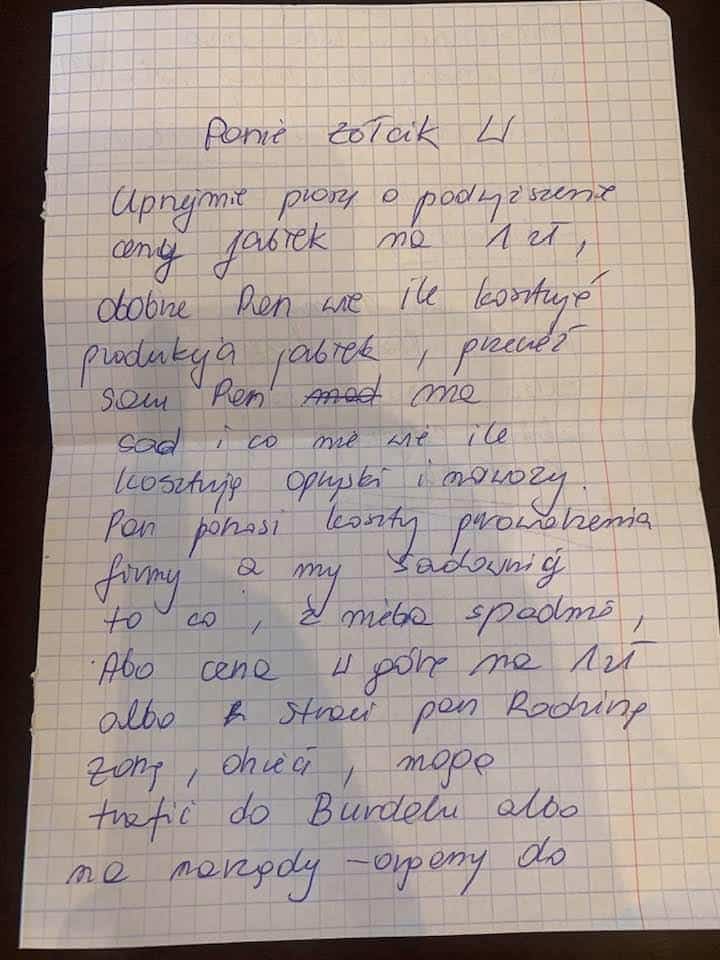 Panie Żółcik W
Uprzejmie proszę o podwyższenie
ceny jabłek na 1 zł,
dobrze Pan wie ile kosztuje
produkcja jabłek, przecież
sam Pan ma
sad i co nie wie ile
kosztuję opryski i nawozy.
Pan ponosi koszty prowadzenia
firmy a my sadownicy
to co, z nieba spadnie,
Abo cena w górę na 1 zł
albo straci pan Rodzinę
żonę, dzieci, mogą
trafić do Burdelu albo
na narządy - organy do